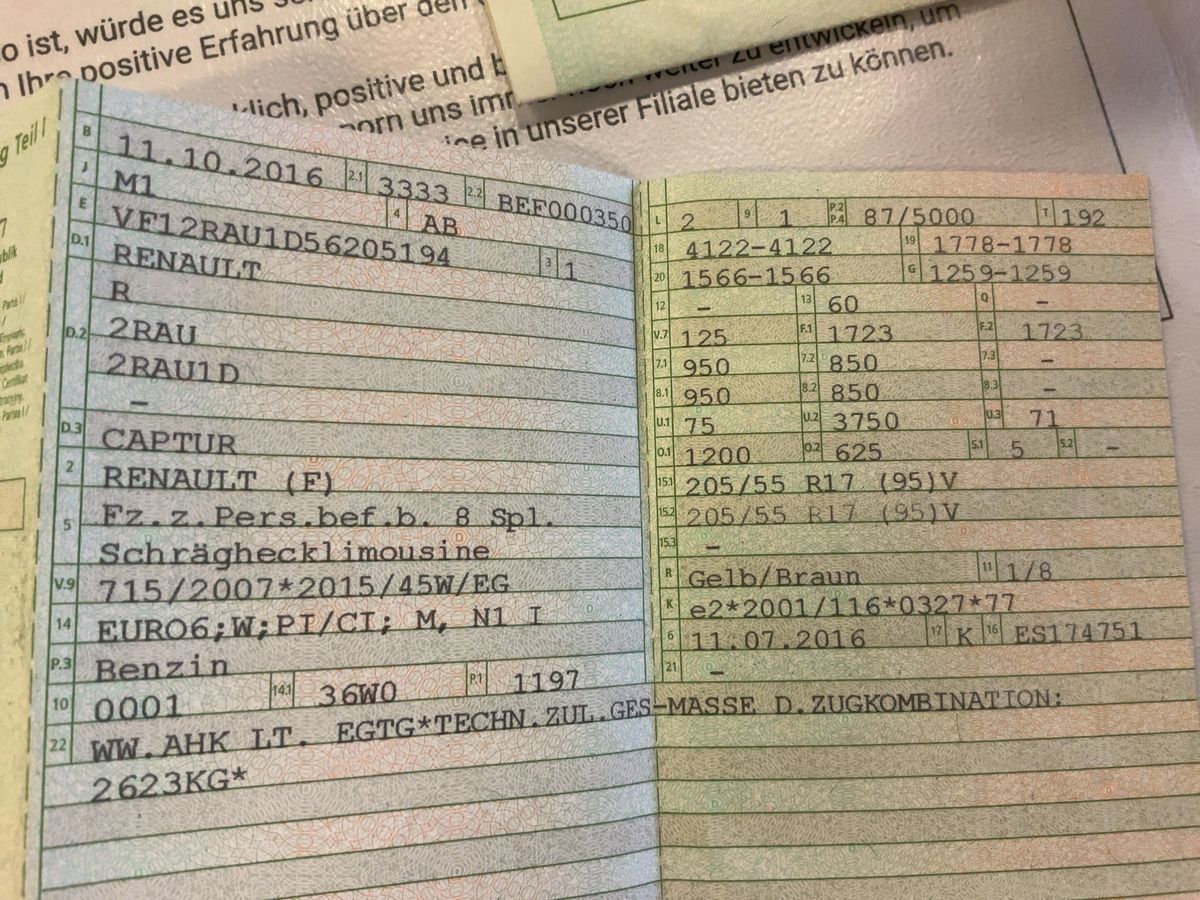 o ist, würde es uns
Ihre positive Erfahrung über den
lich, positive und b
orn uns im weiter zu entwickeln, um
ice in unserer Filiale bieten zu können.
g Teil I
B 11.10.2016 2.1 3333 2.2 BEF000350
J M1 4 AB
E VF12RAU1D56205194 3 1
D.1 RENAULT
R
D.2 2RAU
2RAU1D
–
D.3 CAPTUR
2 RENAULT (F)
5 Fz.z.Pers.bef.b. 8 Spl.
Schräghecklimousine
V.9 715/2007*2015/45W/EG
14 EURO6;W;PI/CI; M, N1 I
P.3 Benzin
10 0001 14.1 36W0 P.1 1197
22 WW.AHK LT. EGTG*TECHN.ZUL.GES-MASSE D.ZUGKOMBINATION:
2623KG*
L 2 9 1 P.2 P.4 87/5000 T 192
18 4122-4122 19 1778-1778
20 1566-1566 G 1259-1259
12 – 13 60 Q –
V.7 125 F.1 1723 F.2 1723
7.1 950 7.2 850 7.3 –
8.1 950 8.2 850 8.3 –
U.1 75 U.2 3750 U.3 71
O.1 1200 O.2 625 S.1 5 S.2 –
15.1 205/55 R17 (95)V
15.2 205/55 R17 (95)V
15.3 –
R Gelb/Braun 11 1/8
K e2*2001/116*0327*77
6 11.07.2016 17 K 16 ES174751
21 –